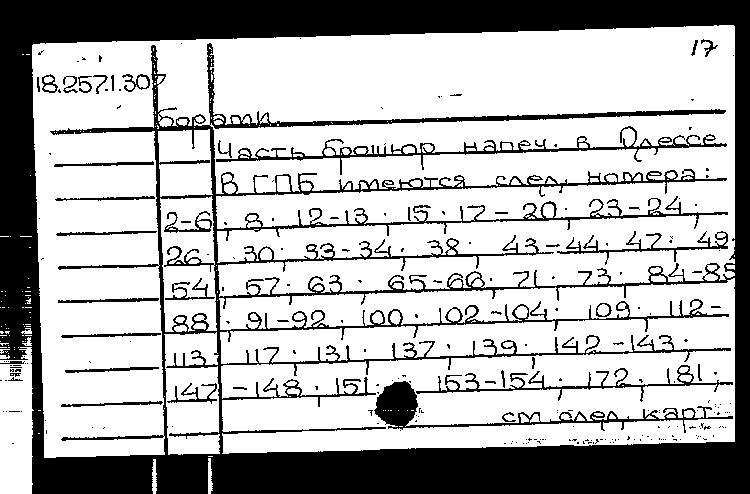 17
18.257.1.307
борами
Часть брошюр напеч. в Одессе
В ГПБ имеются след. номера:
2-6; 8; 12-13; 15; 17-20; 23-24;
26; 30; 33-34; 38; 43-44; 47; 49;
54; 57; 63; 65-66; 71; 73; 84-85
88; 91-92; 100; 102-104; 109; 112-
113; 117; 131; 137; 139; 142-143;
147-148; 151; 153-154; 172; 181;
см. след. карт.